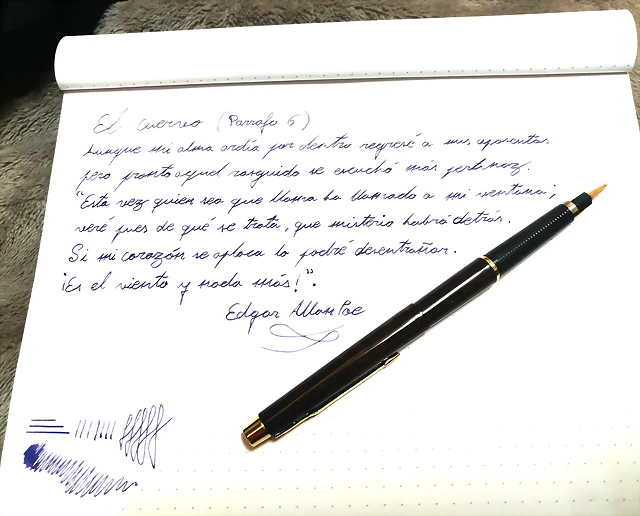 El cuervo (Parrafo 6)
Aunque mi alma ardía por dentro regresé a mis aposentos
pero pronto aquel rasguido se escuchó más pertinaz.
"Esta vez quien sea que llama ha llamado a mi ventana;
veré pues de qué se trata, que misterio habrá detrás.
Si mi corazón se aplaca lo podré desentrañar.
¡Es el viento y nada más!".
Edgar Allan Poe